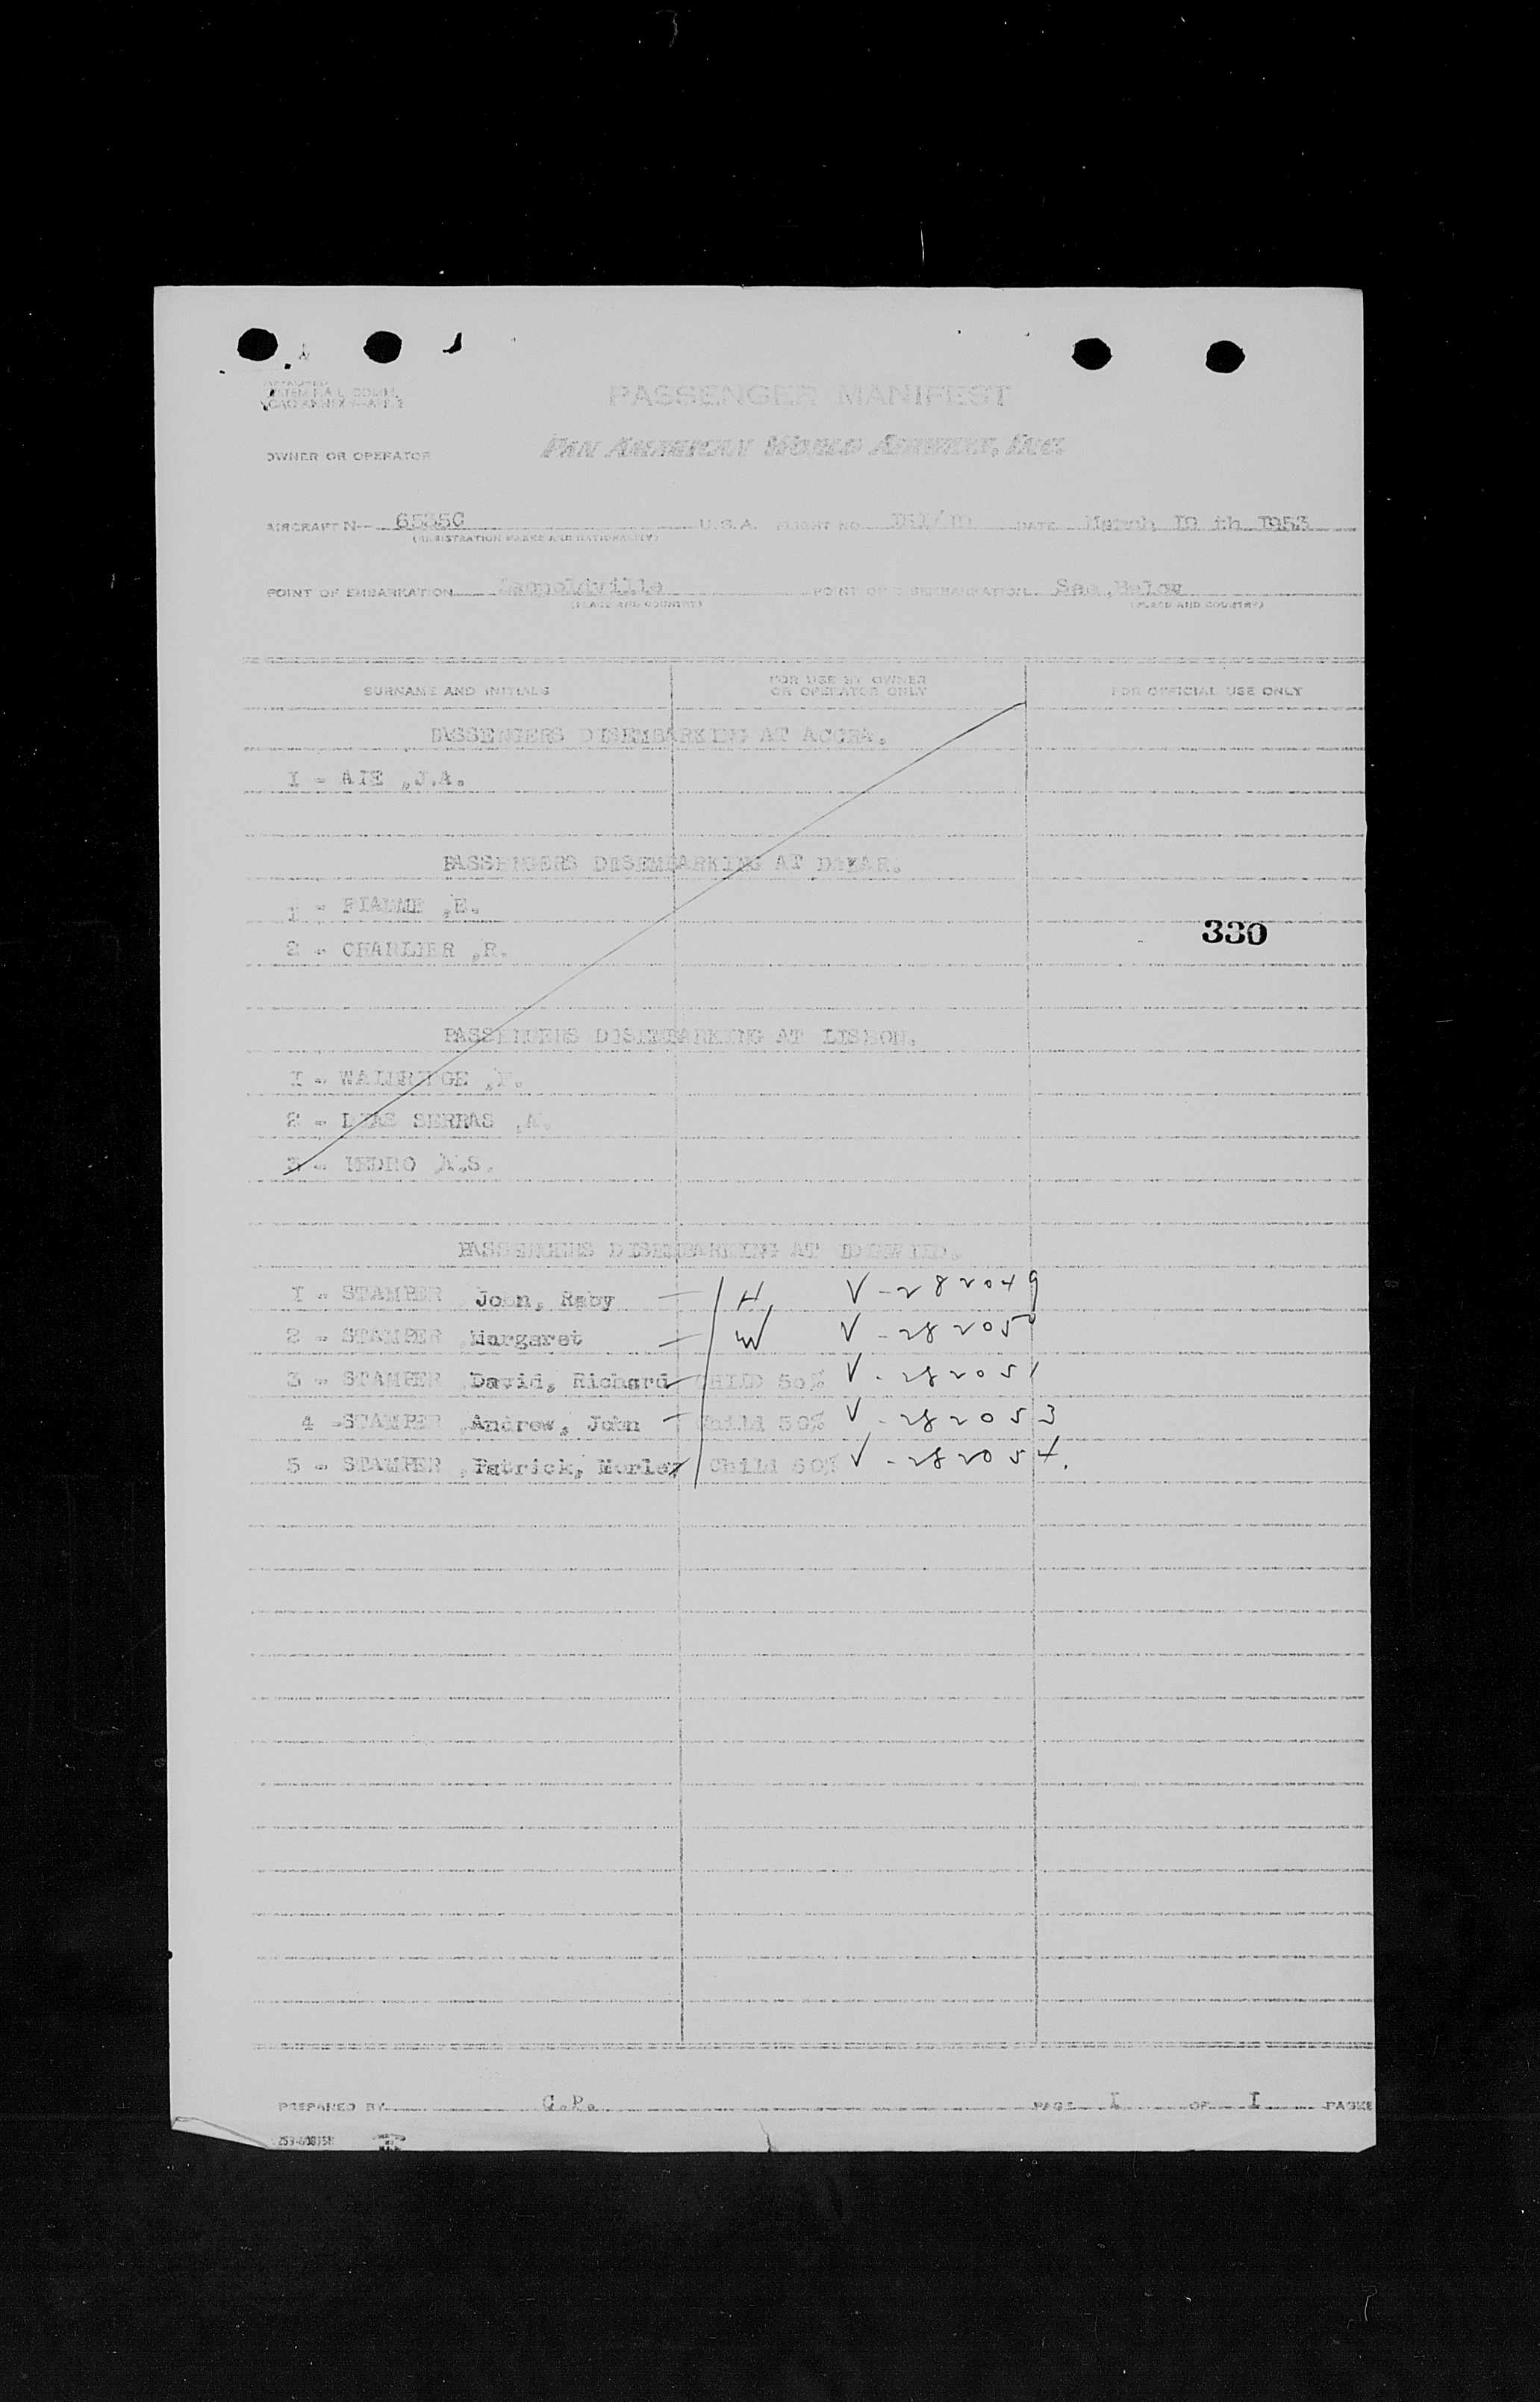 PASSENGER MANIFEST
OWNER OR OPERATOR PAN AMERICAN WORLD AIRWAYS, INC.
AIRCRAFT N- 6535C U.S.A. FLIGHT NO. DATE March 19 th 1953
(REGISTRATION MARKS AND NATIONALITY)
POINT OF EMBARKATION Leopoldville POINT OF DISEMBARKATION See Below
(PLACE AND COUNTRY) (PLACE AND COUNTRY)
SURNAME AND INITIALS FOR USE BY OWNER OR OPERATOR ONLY FOR OFFICIAL USE ONLY
PASSENGERS DISEMBARKING AT ACCRA.
I - AIE ,J.A.
PASSENGERS DISEMBARKING AT DAKAR.
1 - ,E.
330
2 - CHARLIER ,R.
PASSENGERS DISEMBARKING AT LISBON.
I - ,F.
2 - DIAS SERRAS ,A.
3 - A.S.
PASSENGERS DISEMBARKING AT IDLEWILD.
I - STAMPER John, Raby H V-282049
2 - STAMPER ,Margaret W V-282050
3 - STAMPER ,David, Richard CHILD 50% V-282051
4 -STAMPER ,Andrew, John Child 50% V-282053
5 - STAMPER ,Patrick, Morley Child 50% V-282054.
PREPARED BY G.P. PAGE I OF I PAGES